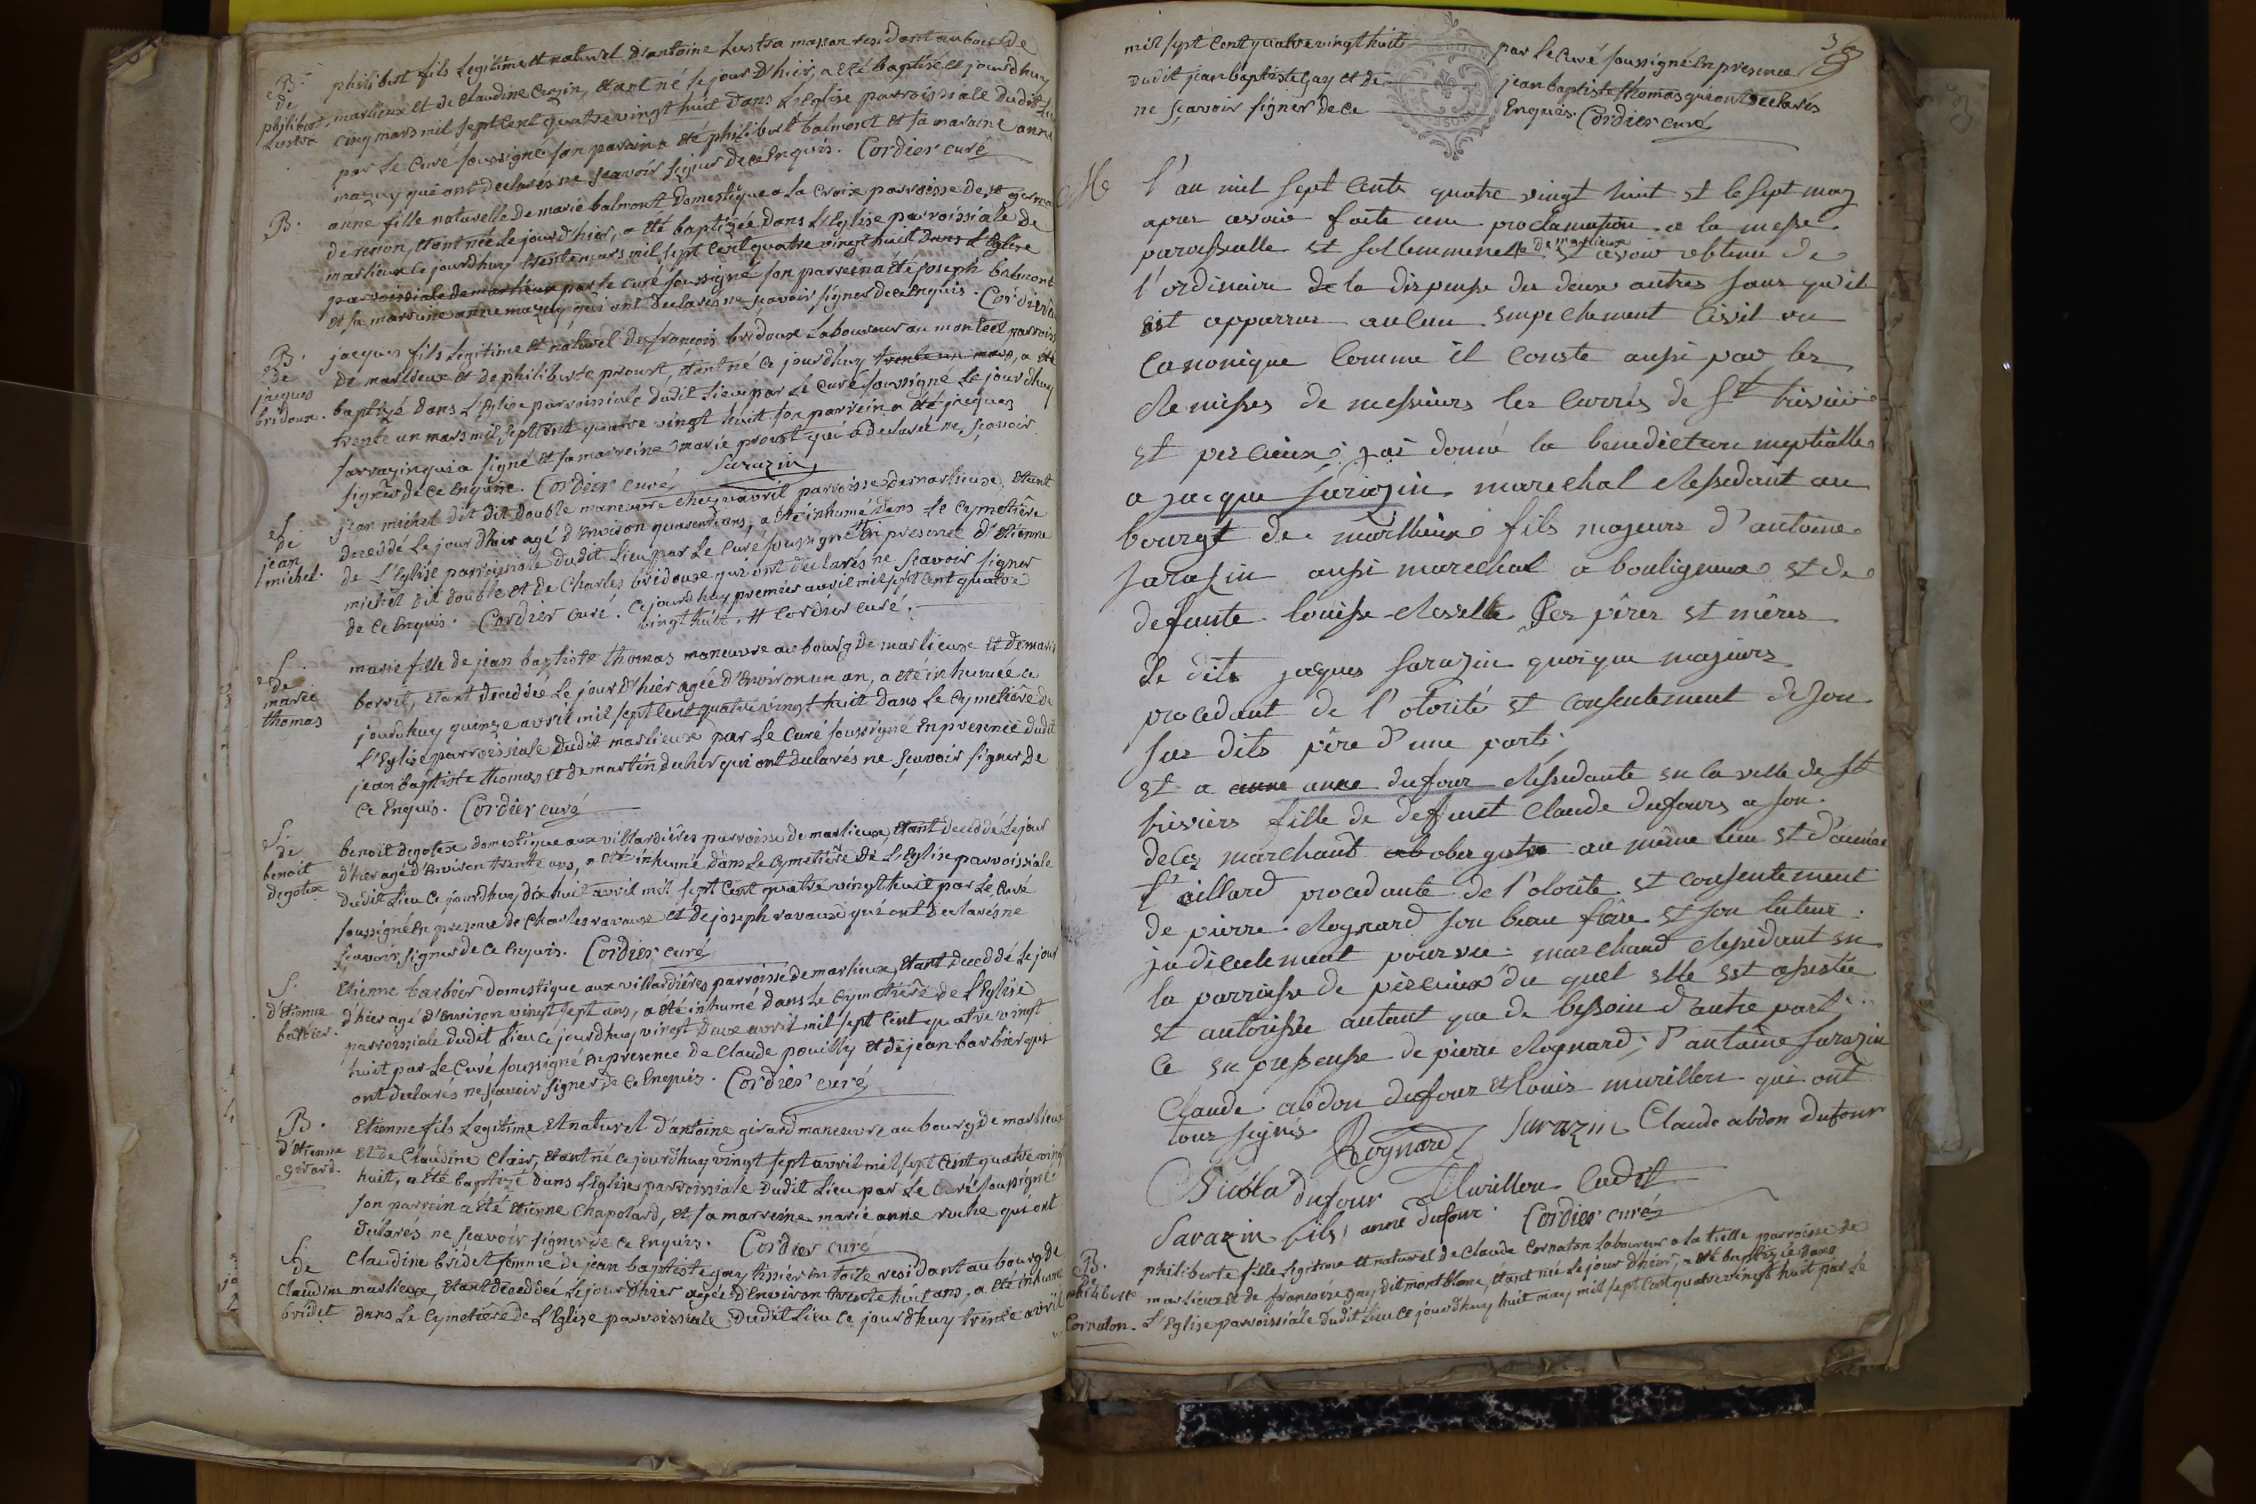 B.
de
philibert
Lustra
philibert fils Legitime et naturel d'antoine Lustra masson residant au bourg de
marlieux et de Claudine Crozin, étant né le jour d'hier, a été baptisé ce jourd'huy
cinq mars mil sept Cent quatre vingt huit dans L'Eglise parroissiale dudit Lieu
par Le Curé soussigné son parrein a été philibert balmont et sa maraine anne
mazuy qui ont declarés ne sçavoir signer de ce Enquis. Cordier curé
B.
anne fille naturelle de marie balmont domestique a la Croix parroisse de st germain
de renon, étant née Le jour d'hier, a été baptizée dans L'Eglise parroissiale de
marlieux Ce jourd'huy trente mars mil sept Cent quatre vingt huit dans L'Eglise
parroissiale de marlieux par Le curé soussigné son parrein a été joseph balmont
et sa marraine anne mazuy qui ont declarés ne sçavoir signer de ce Enquis. Cordier
B.
de
jacques
bridoux.
jacques fils Legitime et naturel de françois bridoux Laboureur au montcel parroisse
de marlieux et de philiberte proust, étant né Ce jourd'huy trente un mars, a été
baptizé dans L'Eglise parroissiale dudit Lieu par Le Curé soussigné Le jourd'huy
trente un mars mil sept Cent quatre vingt huit son parrein a été jacques
sarrazin qui a signé et sa marreine marie proust qui a declaré ne sçavoir
signer de ce Enquise. Cordier curé Sarazin
S.
de
jean
michel.
jean michel dit dit double maneuvre chez vavril parroisse de marlieux, étant
decedé Le jour d'hier agé d'Environ quarente ans, a été inhumé dans Le Cymetière
de L'Eglise parroissiale dudit Lieu par Le Curé soussigné En presence d'Etienne
michel dit double et de Charles bridoux qui ont declarés ne sçavoir signer
de Ce Enquis. Cordier curé. Ce jourd'huy premier avril mil sept Cent quatre
vingt huit. # Cordier curé.
S.
de
marie
thomas
marie fille de jean baptiste thomas maneuvre au bourg de marlieux et de marie
borrit, étant decedée Le jour d'hier agée d'Environ un an, a été inhumée ce
jourd'huy quinze avril mil sept Cent quatre vingt huit dans Le Cymetière de
L'Eglise parroissiale dudit marlieux par Le Curé soussigné En presence dudit
jean baptiste thomas et de martin duhis qui ont declarés ne sçavoir signer de
Ce Enquis. Cordier curé
S.
de
benoit
degotex
benoit degotex domestique aux villardières parroisse de marlieux, étant decedé Le jour
d'hier agé d'Environ trente ans, a été inhumé dans Le Cymetière de L'Eglise parroissiale
dudit Lieu Ce jourd'huy dix huit avril mil sept Cent quatre vingt huit par Le Curé
soussigné En presence de Charles ravaux et de joseph ravaux qui ont declarés ne
sçavoir signer de Ce Enquis. Cordier curé
S.
d'Etienne
barbier.
Etienne barbier domestique aux villardières parroisse de marlieux, étant decedé Le jour
d'hier agé d'Environ vingt sept ans, a été inhumé dans Le Cymetière de L'Eglise
parroissiale dudit Lieu Ce jourd'huy vingt deux avril mil sept Cent quatre vingt
huit par Le Curé soussigné En presence de Claude pouilly et de jean barbier qui
ont declarés ne sçavoir signer de Ce Enquis. Cordier curé
B.
d'Etienne
girard.
Etienne fils Légitime et naturel d'antoine girard maneuvre au bourg de marlieux
et de Claudine Clair, étant né Ce jourd'huy vingt sept avril mil sept Cent quatre vingt
huit, a été baptizé dans L'Eglise parroissiale dudit Lieu par Le Curé soussigné
son parrein a été Etienne Chapolard, et sa marreine marie anne ruche qui ont
declarés ne sçavoir signer de Ce Enquis. Cordier curé
S.
de
Claudine
bridet
Claudine bridet femme de jean baptiste gay tissier En toile residant au bourg de
marlieux, étant decedée Le jour d'hier agée d'Environ trente huit ans, a été inhumée
dans Le Cymetière de L'Eglise parroissiale dudit Lieu Ce jourd'huy trente avril
36
mil sept Cent quatre vingt huit par Le Curé soussigné En presence
dudit jean baptiste gay et de jean baptiste thomas qui ont declarés
ne sçavoir signer de Ce Enquis. Cordier curé
M
l'an mil sept Cents quatre vingt huit et le sept may
apres avoir faite une proclamation a la messe
paroissialle et sollemnnelle de marlieux et avoir obtenu de
l'ordinaire de la dispense de deux autres sans qu'il
ait apparrus aucun empechement Civil ou
Canonique Comme il Conste aussi par les
Remises de messieurs les Currés de St trivier
et percieux j'ai donné la benediction nuptialle
a jacque Sarazin marechal Ressidant au
bourgt de marlieux fils majeurs d'antoine
sarazin aussi marechal a bouligneux et de
defunte louisse Roselle Ses pères et mères
le dits jaques sarazin quoi que majeurs
procedant de l'otorité et consentement de son
sus dits père d'une parti
et a anne anne dufour Ressidante en la ville de St
triviers fille de deffunt Claude dufours a son
decez marchant ob obergiste au même lieu et d'aimée
l'aillard procedante de l'otorite et consentement
de pierre Rognard son beau frère et son tuteur
judicielement pourvu marchand Ressidant en
la parroisse de percieux du quel elle est assistée
et autorissée autant que de bessoin d'autre part
Ce en pressense de pierre Rognard, d'antoine sarazin
Claude abdon dufour et louis murillon qui ont
tous signés Rognard Sarazin Claude abdon dufour
Nicola dufour Murillon Cadet
Sarazin fils anne dufour Cordier curé
B.
de
philiberte
Cornaton.
philiberte fille Legitime et naturel de Claude Cornaton Laboureur a la tielle parroisse de
marlieux et de françoise gay dit mont blanc, étant née Le jour d'hier, a été baptizée dans
L'Eglise parroissiale dudit Lieu Ce jourd'huy huit may mil sept Cent quatre vingt huit par Le